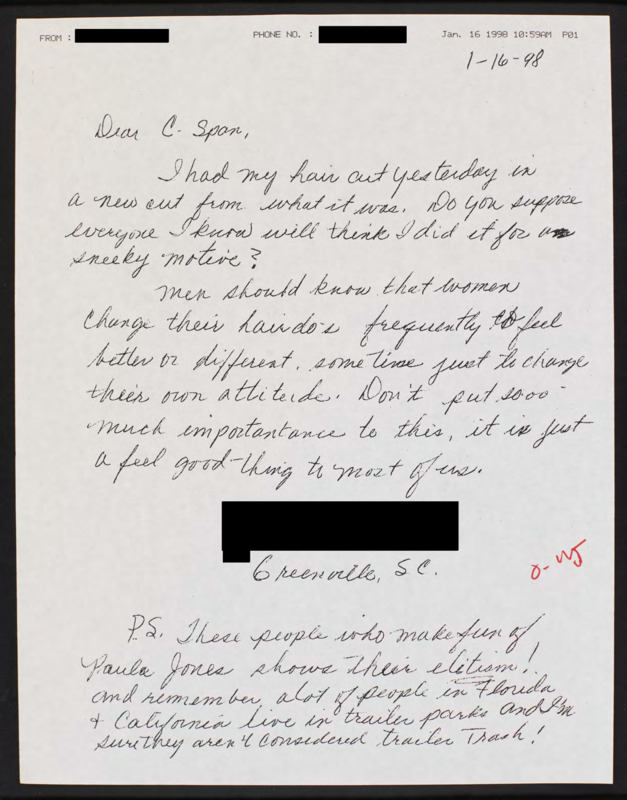 FROM :
PHONE NO. :
Jan. 16 1998 10:59AM P01
1-16-98
Dear C-Span,
I had my hair cut yesterday in
a new cut from what it was. Do you suppose
everyone I know will think I did it for a
sneeky motive?
Men should know that women
change their hairdo's frequently to feel
better or different, sometime just to change
their own attitude. Don't put sooo
much importantance to this, it is just
a feel good-thing to most of us.
Greenville, S.C.
P.S. These people who make fun of
Paula Jones shows their elitism!
and remember, alot of people in Florida
& California live in trailer parks and I'm
sure they aren't considered trailer Trash!